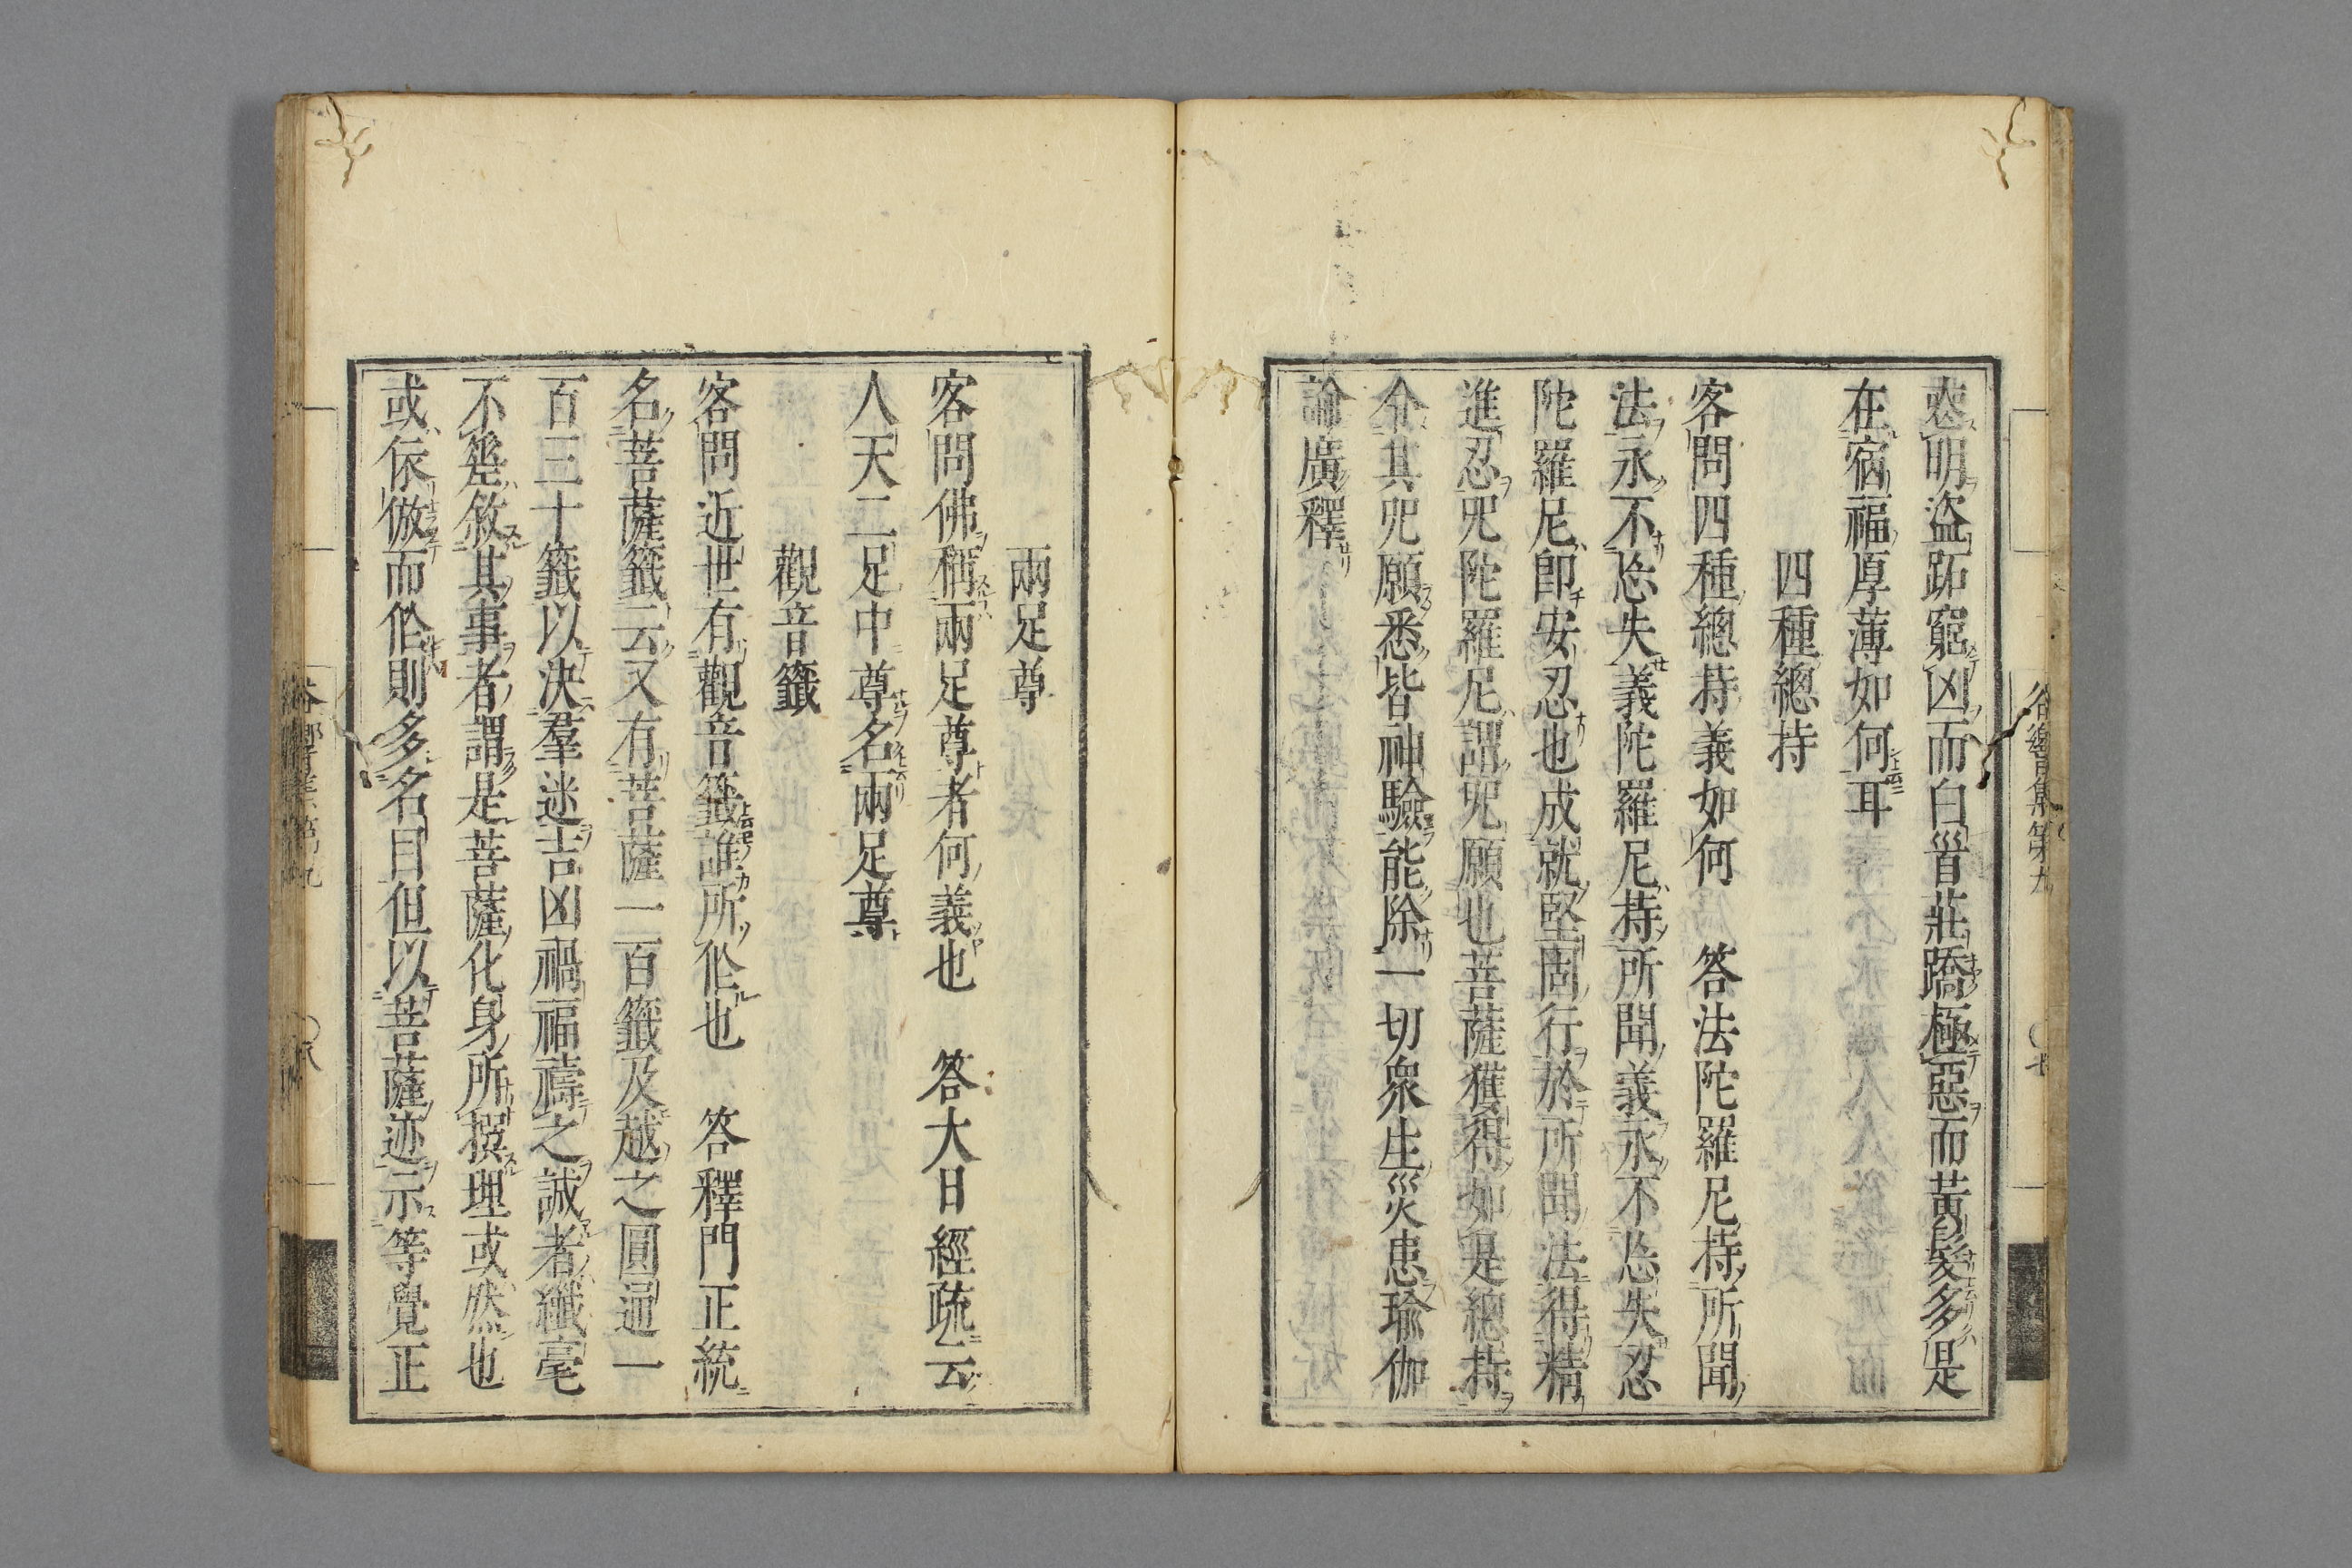 悲明盜跖窮凶而白首莊蹻極惡而黃髮多是
在宿福厚薄如何耳
四種總持
客問四種總持義如何　答法陀羅尼持所聞
法永不忘失義陀羅尼持所聞義永不忘失忍
陀羅尼即安忍也成就堅固行於所聞法得精
進忍咒陀羅尼謂咒願也菩薩獲得如是總持
令其咒願悉皆神驗能除一切衆生災患瑜伽
論廣釋
兩足尊
客問佛稱兩足尊者何義也　答大日經疏云
人天二足中尊名兩足尊
觀音籤
客問近世有觀音籤誰所作也　答釋門正統
名菩薩籤云又有菩薩一百籤及越之圓通一
百三十籤以決羣迷吉凶禍福禱之誠者纖毫
不差敘其事者謂是菩薩化身所撰理或然也
或依倣而作則多名目但以菩薩迹示等覺正
谷響集第九
〇七
谷響集第九
〇八